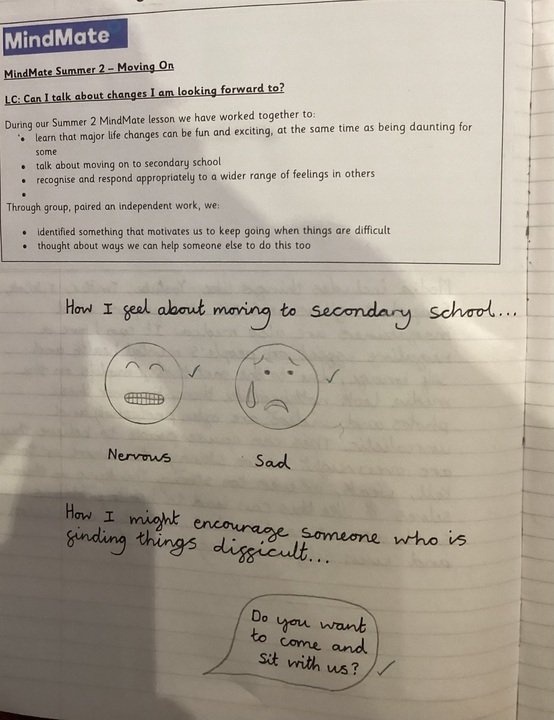 MindMate
MindMate Summer 2 – Moving On
LC: Can I talk about changes I am looking forward to?
During our Summer 2 MindMate lesson we have worked together to:
• learn that major life changes can be fun and exciting, at the same time as being daunting for
some
• talk about moving on to secondary school
• recognise and respond appropriately to a wider range of feelings in others
•
Through group, paired an independent work, we:
• identified something that motivates us to keep going when things are difficult
• thought about ways we can help someone else to do this too
How I feel about moving to secondary school...
Nervous
Sad
How I might encourage someone who is
finding things difficult...
Do you want
to come and
sit with us?